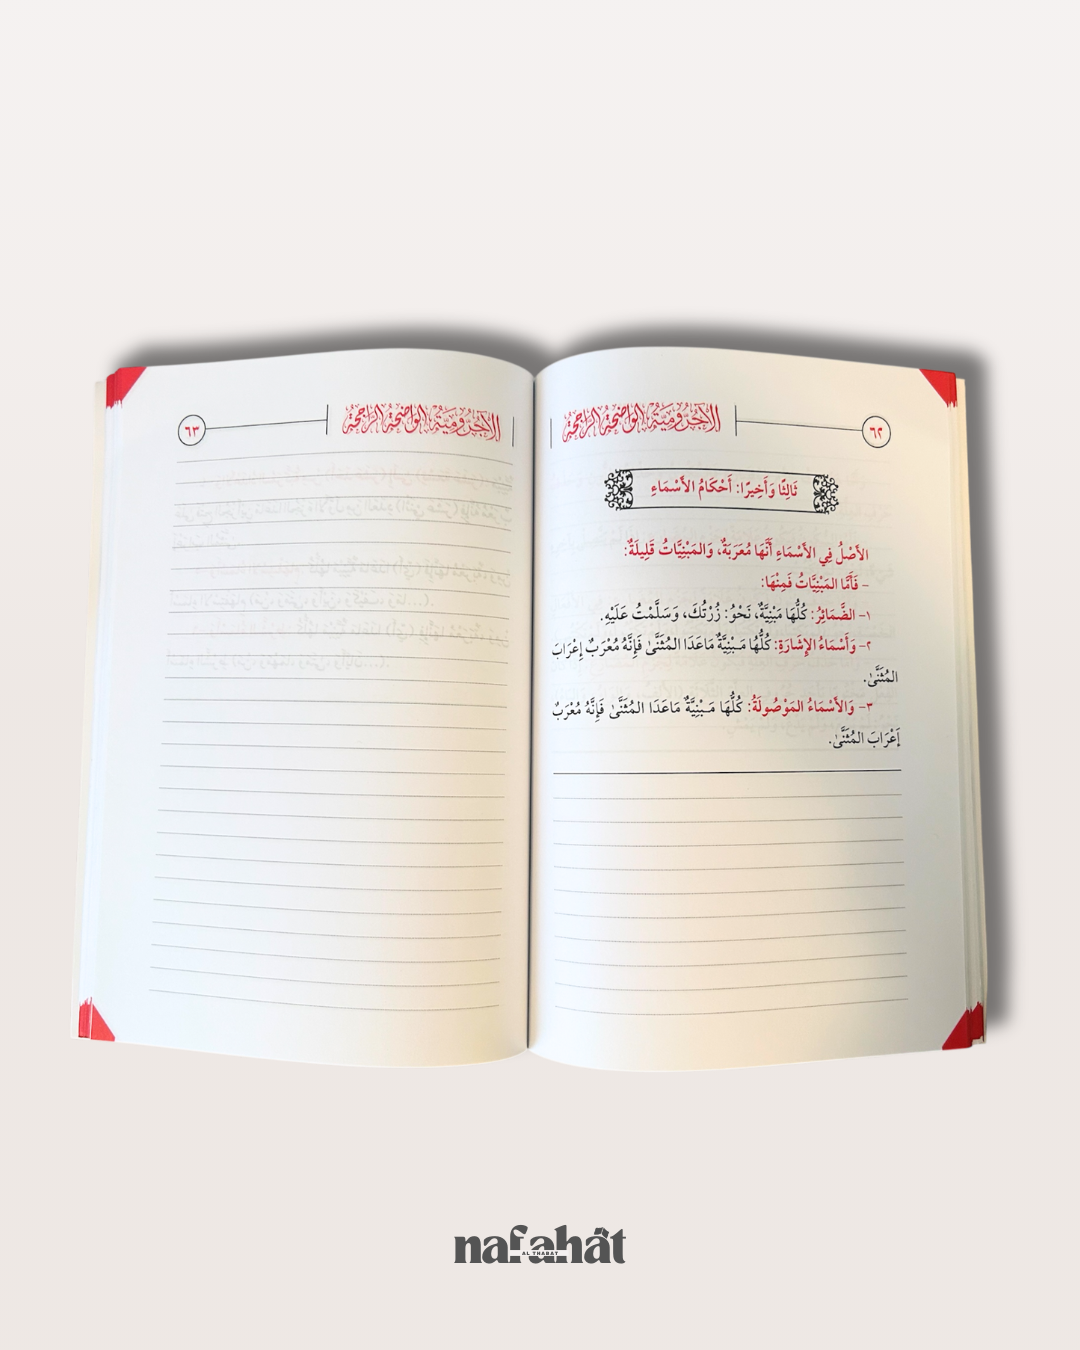 ٦٢
الآجرومية الواضحة الراجحة
ثَالِثًا وَأَخِيرًا: أَحْكَامُ الأَسْمَاءِ
الأَصْلُ فِي الأَسْمَاءِ أَنَّهَا مُعَرَبَةٌ، وَالمَبْنِيَّاتُ قَلِيلَةٌ:
- فَأَمَّا المَبْنِيَّاتُ فَمِنْهَا:
١- الضَّمَائِرُ: كُلُّهَا مَبْنِيَّةٌ، نَحْوُ: زُرْتُكَ، وَسَلَّمْتُ عَلَيْهِ.
٢- وَأَسْمَاءُ الإِشَارَةِ: كُلُّهَا مَبْنِيَّةٌ مَاعَدَا المُثَنَّىٰ فَإِنَّهُ مُعْرَبٌ إِعْرَابَ
المُثَنَّىٰ.
٣- وَالأَسْمَاءُ المَوْصُولَةُ: كُلُّهَا مَبْنِيَّةٌ مَاعَدَا المُثَنَّىٰ فَإِنَّهُ مُعْرَبٌ
إَعْرَابَ المُثَنَّىٰ.
الآجرومية الواضحة الراجحة
٦٣
nafahât
AL THABAT